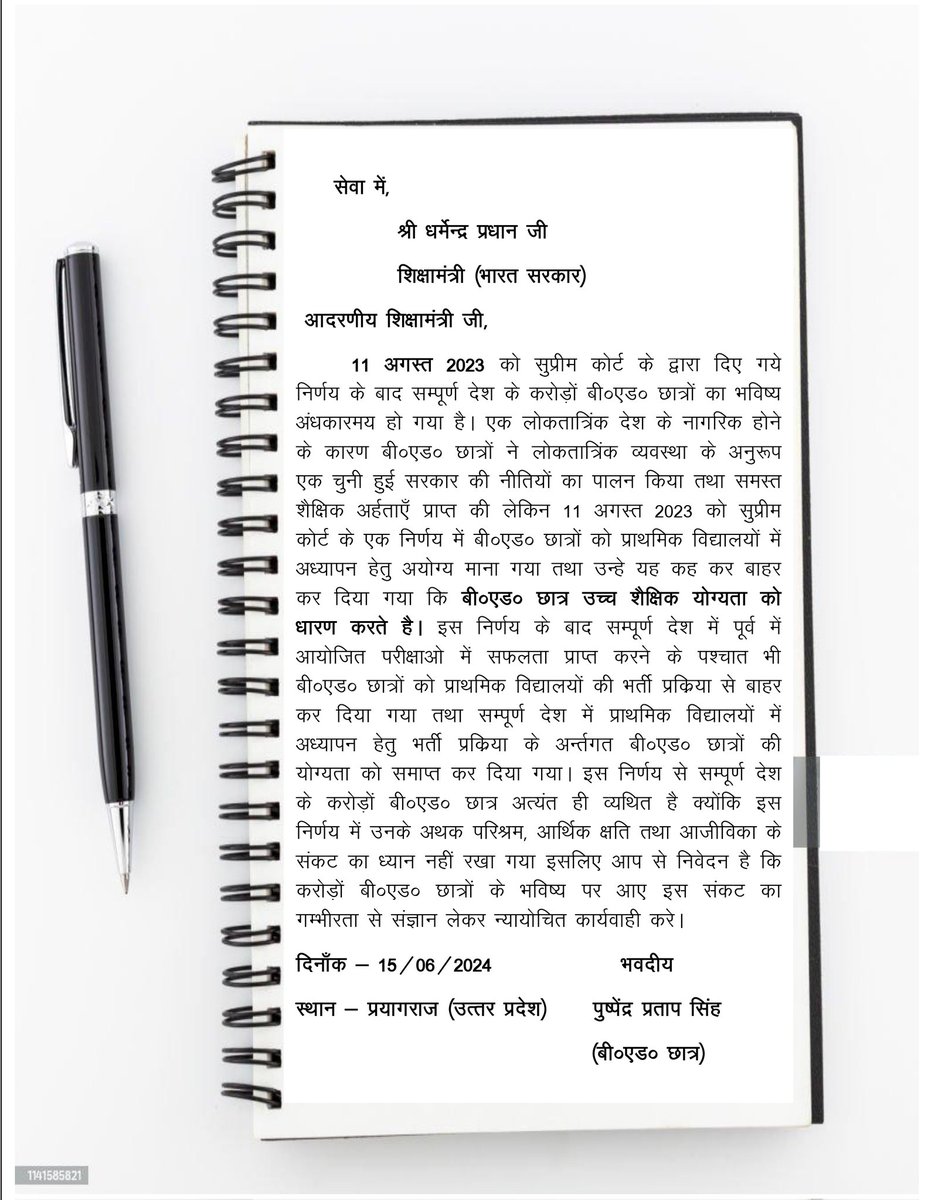 सेवा में,
श्री धर्मेन्द्र प्रधान जी
शिक्षामंत्री (भारत सरकार)
आदरणीय शिक्षामंत्री जी,
11 अगस्त 2023 को सुप्रीम कोर्ट के द्वारा दिए गये
निर्णय के बाद सम्पूर्ण देश के करोड़ों बी०एड० छात्रों का भविष्य
अंधकारमय हो गया है। एक लोकतात्रिंक देश के नागरिक होने
के कारण बी०एड० छात्रों ने लोकतात्रिंक व्यवस्था के अनुरूप
एक चुनी हुई सरकार की नीतियों का पालन किया तथा समस्त
शैक्षिक अर्हताएँ प्राप्त की लेकिन 11 अगस्त 2023 को सुप्रीम
कोर्ट के एक निर्णय में बी०एड० छात्रों को प्राथमिक विद्यालयों में
अध्यापन हेतु अयोग्य माना गया तथा उन्हे यह कह कर बाहर
कर दिया गया कि बी०एड० छात्र उच्च शैक्षिक योग्यता को
धारण करते है। इस निर्णय के बाद सम्पूर्ण देश में पूर्व में
आयोजित परीक्षाओ में सफलता प्राप्त करने के पश्चात भी
बी०एड० छात्रों को प्राथमिक विद्यालयों की भर्ती प्रक्रिया से बाहर
कर दिया गया तथा सम्पूर्ण देश में प्राथमिक विद्यालयों में
अध्यापन हेतु भर्ती प्रक्रिया के अर्न्तगत बी०एड० छात्रों की
योग्यता को समाप्त कर दिया गया। इस निर्णय से सम्पूर्ण देश
के करोड़ों बी०एड० छात्र अत्यंत ही व्यथित है क्योंकि इस
निर्णय में उनके अथक परिश्रम, आर्थिक क्षति तथा आजीविका के
संकट का ध्यान नहीं रखा गया इसलिए आप से निवेदन है कि
करोड़ों बी०एड० छात्रों के भविष्य पर आए इस संकट का
गम्भीरता से संज्ञान लेकर न्यायोचित कार्यवाही करे।
दिनाँक – 15/06/2024 भवदीय
स्थान – प्रयागराज (उत्तर प्रदेश) पुष्पेंद्र प्रताप सिंह
(बी०एड० छात्र)
1141585821